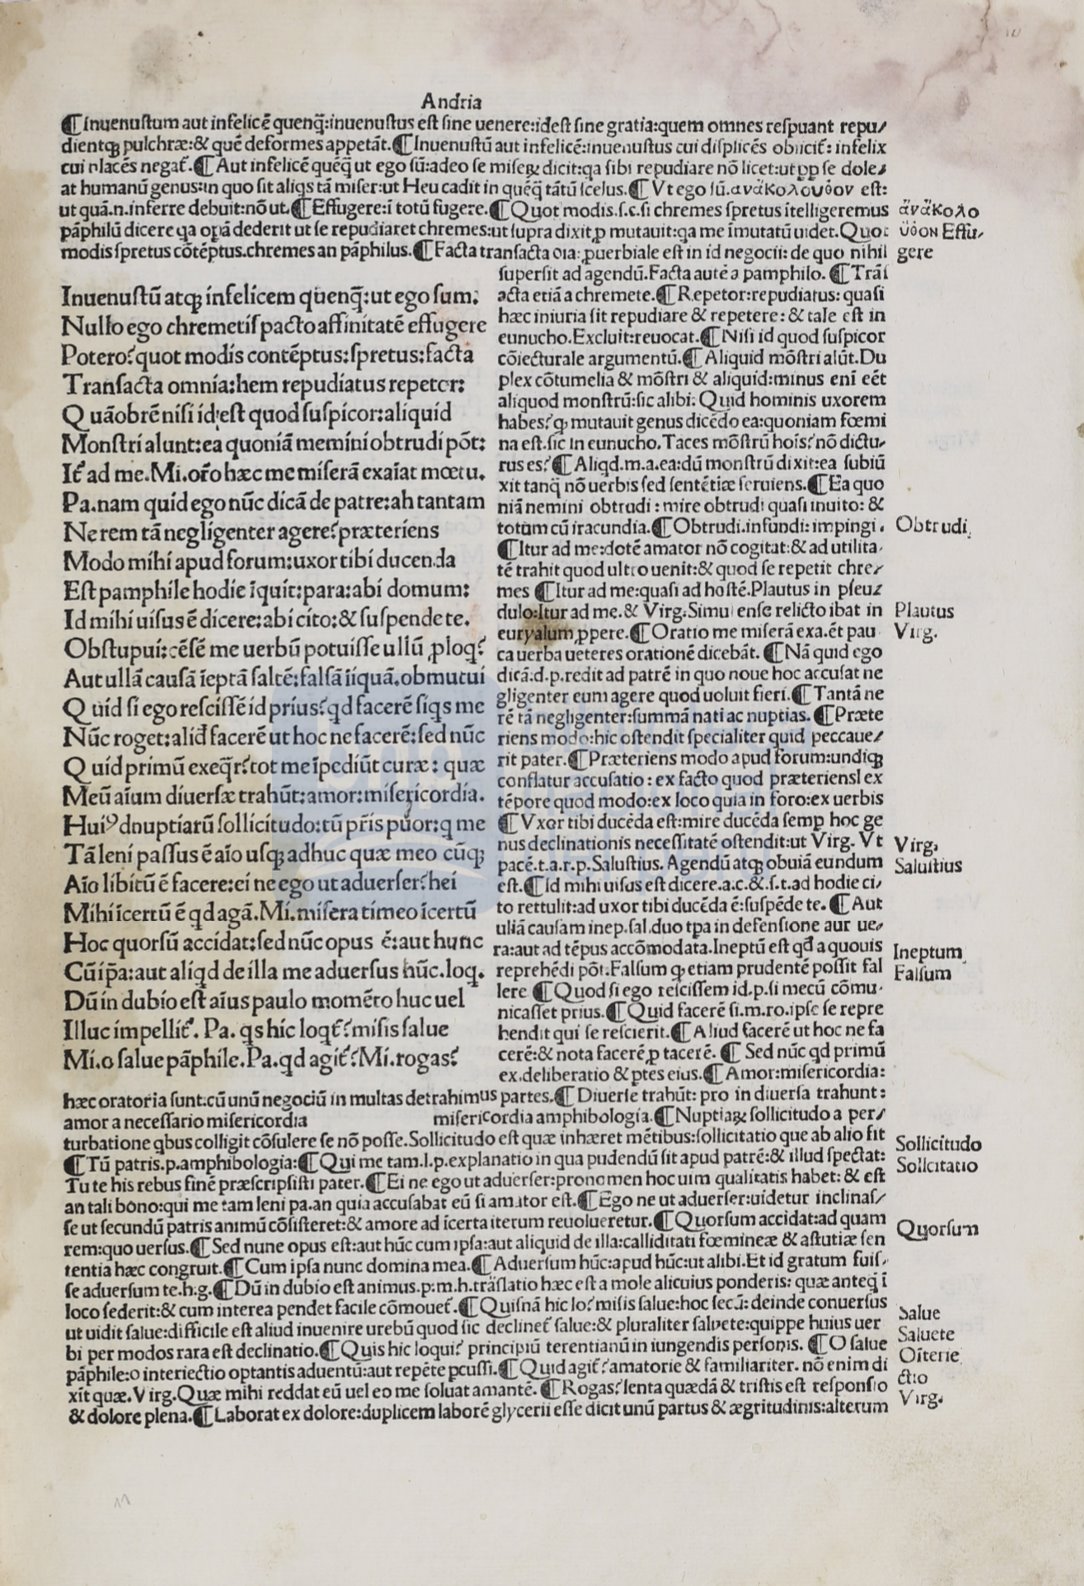 Andria
¶Inuenustum aut infelicē quenq̄:inuenustus est sine uenere:idest sine gratia:quem omnes respuant repu/
dientq; pulchræ:& quē deformes appetāt.¶Inuenustū aut infelicē:inuenustus cui displicēs obiicit᷑: infelix
cui placēs negat᷑.¶Aut infelicē quēq̄ ut ego sū:adeo se miseꝝ dicit:qa sibi repudiare nō licet:ut ꝓp se dole/
at humanū genus:in quo sit aliqs tā miser:ut Heu cadit in quēq̄ tātū scelus.¶Vt ego sū.ανακολουθον est:
ut quā.n.inferre debuit:nō ut.¶Effugere:ī totū fugere.¶Quot modis.s.c.si chremes spretus ītelligeremus
pāphilū dicere qa opā dederit ut se repudiaret chremes:ut supra dixit ꝑ mutauit:qa me īmutatū uidet.Quot
modis spretus cōtēptus.chremes an pāphilus.¶Facta transacta oīa:ꝓuerbiale est in id negocii: de quo nihil
ἀνἀκολο
υθον Effu/
gere
Inuenustū atq; infelicem quenq̄:ut ego sum:
Nullo ego chremetis pacto affinitatē effugere
Potero?quot modis contēptus:spretus:facta
Transacta omnia:hem repudiatus repetor:
Quāobrē nisi id est quod suspicor:aliquid
Monstri alunt:ea quoniā memini obtrudi pōt:
It᷑ ad me.Mi.or̄o hæc me miserā exaīat mœtu.
Pa.nam quid ego nūc dicā de patre:ah tantam
Ne rem tā negligenter agere?præteriens
Modo mihi apud forum:uxor tibi ducenda
Est pamphile hodie īquit:para:abi domum:
Id mihi uisus ē dicere:abi cito:& suspende te.
Obstupui:cēsē me uerbū potuisse ullū ꝓloq?
Aut ullā causā īeptā saltē:falsā īiquā.obmutui
Quid si ego rescissē id prius?qd facerē siqs me
Nūc roget:aliđ facerē ut hoc ne facerē:sed nūc
Quid primū exeq̄r?tot me īpediūt curæ: quæ
Meū aīum diuersæ trahūt:amor:misericordia.
Huiꝰ dnuptiarū sollicitudo:tū p̄ris puor:q me
Tā leni passus ē aīo usq; adhuc quæ meo cūq;
Aīo libitū ē facere:ei ne ego ut aduerser?hei
Mihi īcertū ē qd agā.Mi.misera timeo īcertū
Hoc quorsū accidat:sed nūc opus ē:aut hunc
Cū ip̄a:aut aliqd de illa me aduersus hūc.loq.
Dū in dubio est aīus paulo momēto huc uel
Illuc impellit᷑. Pa. qs hic loqt᷑?misis salue
Mi.o salue pāphile.Pa.qd agit᷑?Mi.rogas?
supersit ad agendū.Facta autē a pamphilo. ¶Trās
acta etiā a chremete.¶Repetor:repudiatus: quasi
hæc iniuria sit repudiare & repetere: & tale est in
eunucho.Excluit:reuocat.¶Nisi id quod suspicor
cōiecturale argumentū.¶Aliquid mōstri alūt.Du
plex cōtumelia & mōstri & aliquid:minus eni eēt
aliquod monstrū:sic alibi: Quid hominis uxorem
habes?ꝙ mutauit genus dicēdo ea:quoniam fœmi
na est.sic in eunucho.Taces mōstrū hois?nō dictu/
rus es?¶Aliqd.m.a.ea:dū monstrū dixit:ea subiū
xit tanq̄ nō uerbis sed sentētiæ seruiens.¶Ea quo
niā nemini obtrudi : mire obtrudi quasi inuito: &
totum cū iracundia.¶Obtrudi.infundi: impingi.
¶Itur ad me:dotē amator nō cogitat:& ad utilita-
tē trahit quod ultro uenit:& quod se repetit chre/
mes ¶Itur ad me:quasi ad hostē.Plautus in pseu/
dulo:Itur ad me.& Virg:Simul ense relicto ibat in
euryalum ꝓpere.¶Oratio me miserā exa.ēt pau
ca uerba ueteres orationē dicebāt. ¶Nā quid ego
dicā:d.p.redit ad patrē in quo noue hoc accusat ne
gligenter eum agere quod uoluit fieri.¶Tantā ne
rē tā negligenter:summā nati ac nuptias. ¶Præte
riens modo:hic ostendit specialiter quid peccaue/
rit pater.¶Præteriens modo apud forum:undiq;
conflatur accusatio : ex facto quod præteriensl ex
tēpore quod modo:ex loco quia in foro:ex uerbis
¶Vxor tibi ducēda est:mire ducēda semꝑ hoc ge
nus declinationis necessitatē ostendit:ut Virg. Vt
pacē.t.a.r.p.Salustius. Agendū atq; obuiā eundum
est.¶Id mihi uisus est dicere.a.c.&.s.t.ad hodie ci/
to rettulit:ad uxor tibi ducēda ē:suspēde te. ¶Aut
ullā causam inep.sal.duo tpa in defensione aur ue/
ra:aut ad tēpus accōmodata.Ineptū est qđ a quouis
reprehēdi pōt.Falsum ꝙ etiam prudentē possit fal
lere ¶Quod si ego rescissem id.p.si mecū cōmu-
nicasset prius.¶Quid facerē si.m.ro.ipse se repre
hendit qui se rescierit.¶Aliud facerē ut hoc ne fa
cerē:& nota facerē ꝑ tacerē. ¶Sed nūc qd primū
ex.deliberatio & ptes eius.¶Amor:misericordia:
Obtrudi.
Plautus
Virg.
Virg.
Salustius
Ineptum
Falsum
hæc oratoria sunt:cū unū negociū in multas detrahimus partes.¶Diuerse trahūt: pro in diuersa trahunt:
amor a necessario misericordia misericordia amphibologia.¶Nuptiaꝝ sollicitudo a per/
turbatione qbus colligit cōsulere se nō posse.Sollicitudo est quæ inhæret mētibus:sollicitatio que ab alio fit
¶Tū patris.p.amphibologia:¶Qui me tam.l.p.explanatio in qua pudendū sit apud patrē:& illud spectat:
Tu te his rebus finē præscripsisti pater.¶Ei ne ego ut aduerser:pronomen hoc uim qualitatis habet: & est
an tali bono:qui me tam leni pa.an quia accusabat eū si amator est.¶Ego ne ut aduerser:uidetur inclinas/
se ut secundū patris animū cōsisteret:& amore ad īcerta iterum reuolueretur.¶Quorsum accidat:ad quam
rem:quo uersus.¶Sed nunc opus est:aut hūc cum ipsa:aut aliquid de illa:calliditati fœmineæ & astutiæ sen
tentia hæc congruit.¶Cum ipsa nunc domina mea.¶Aduersum hūc:apud hūc:ut alibi.Et id gratum fuis/
se aduersum te.h:g.¶Dū in dubio est animus.p:m.h.trāslatio hæc est a mole alicuius ponderis: quæ anteq̄ ī
loco sederit:& cum interea pendet facile cōmouet᷑.¶Quisnā hic lo?misis salue:hoc secū: deinde conuersus
ut uidit salue:difficile est aliud inuenire urebū quod sic declinet᷑ salue:& pluraliter saluete:quippe huius uer
bi per modos rara est declinatio.¶Quis hic loqui? principiū terentianū in iungendis personis. ¶O salue
pāphile:o interiectio optantis aduentū:aut repēte pcussi.¶Quid agit᷑?amatorie & familiariter. nō enim di
xit quæ.Virg.Quæ mihi reddat eū uel eo me soluat amantē. ¶Rogas?lenta quædā & tristis est responsio
& dolore plena.¶Laborat ex dolore:duplicem laborē glycerii esse dicit unū partus & ægritudinis:alterum
Sollicitudo
Sollicitatio
Quorsum
Salue
Saluete
Oīterie
ctio
Virg.